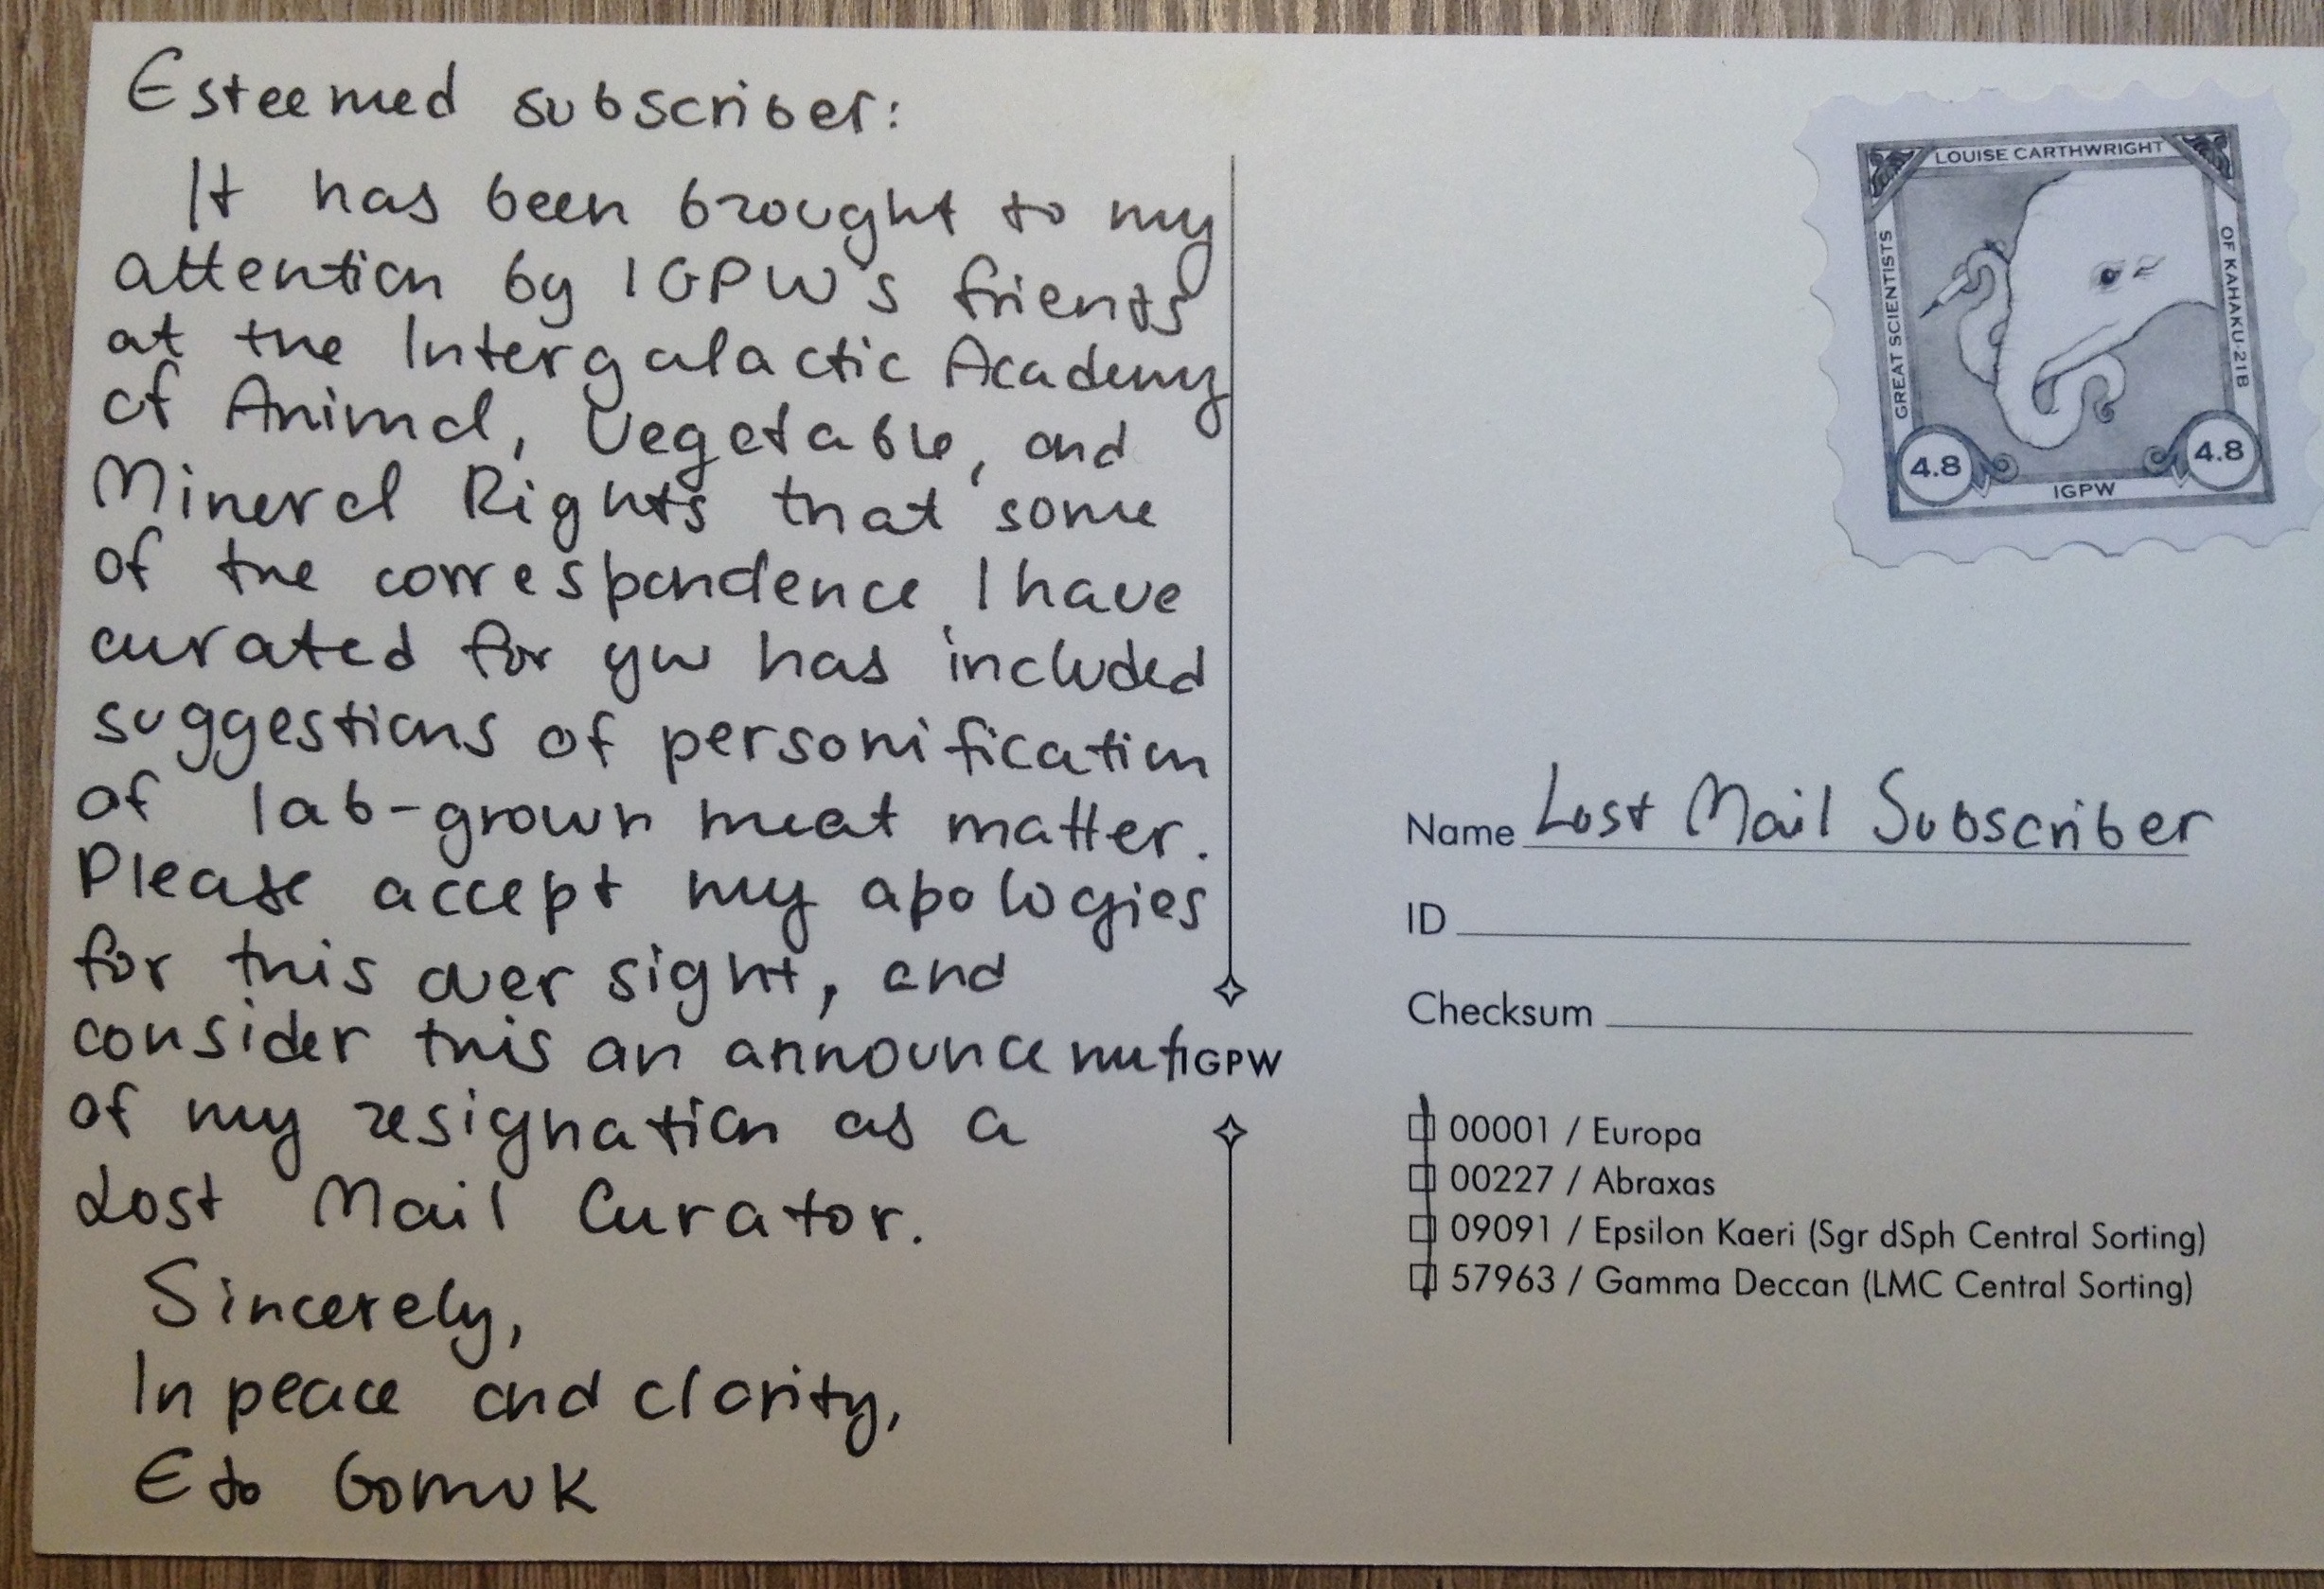 Esteemed subscriber:
It has been brought to my
attention by IGPW's frients
at the Intergalactic Academy
of Animal, Vegetable, and
Mineral Rights that some
of the correspondence I have
curated for you has included
suggestions of personification
of lab-grown meat matter.
Please accept my apologies
for this oversight, and
consider this an announcement
of my resignation as a
Lost Mail Curator.
Sincerely,
In peace and clarity,
Eto Gomuk
IGPW
LOUISE CARTHWRIGHT
GREAT SCIENTISTS
OF KAHAKU-21B
4.8
4.8
IGPW
Name Lost Mail Subscriber
ID
Checksum
00001 / Europa
00227 / Abraxas
09091 / Epsilon Kaeri (Sgr dSph Central Sorting)
57963 / Gamma Deccan (LMC Central Sorting)